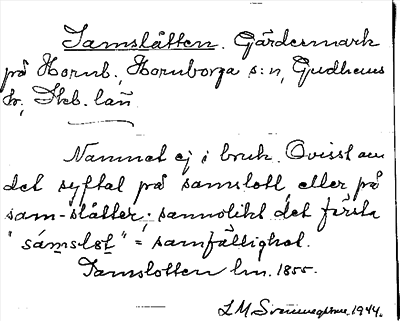 Samslåtten. Gärdesmark
på Hornb., Hornborga s:n, Gudhems
hr, Skb. län.
Namnet ej i bruk. Ovisst om
det syftat på samslott, eller på
sam-slåtter; sannolikt det första
"sámslot" = samfällighet.
Samslotten lm. 1855.
1944.